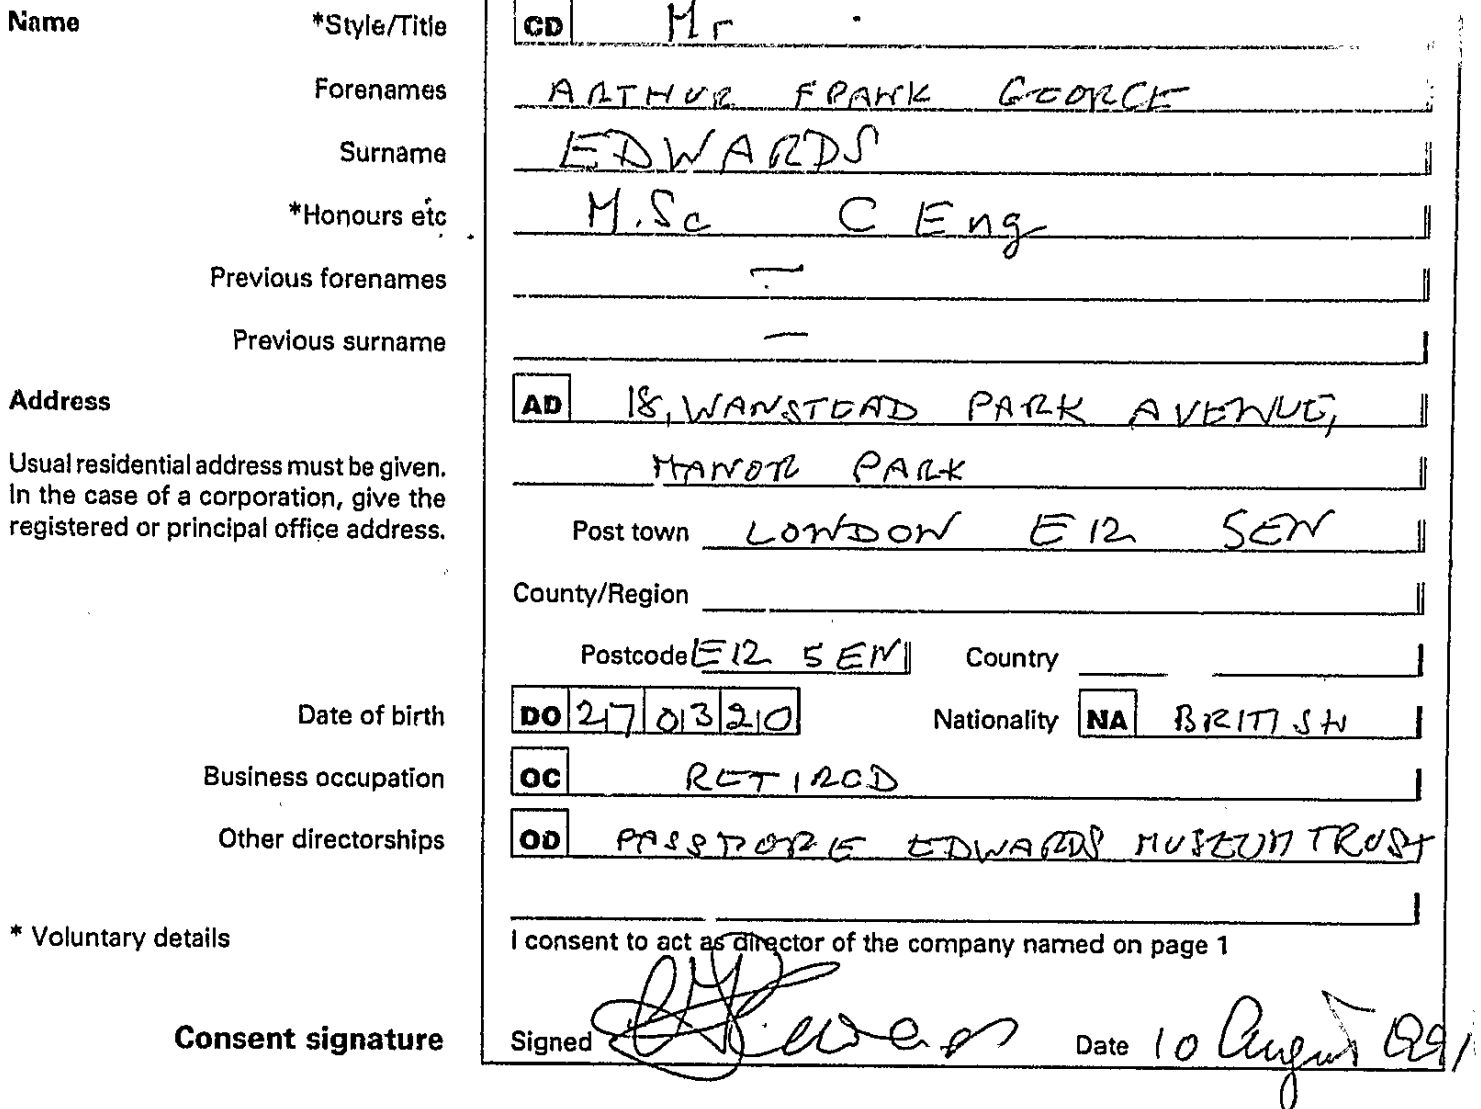 Name *Style/Title CD Mr
Forenames ARTHUR FRANK GEORGE
Surname EDWARDS
*Honours etc M.Sc C Eng
Previous forenames —
Previous surname —
Address AD 18, WANSTEAD PARK AVENUE,
Usual residential address must be given. MANOR PARK
In the case of a corporation, give the
registered or principal office address. Post town LONDON E12 5EN
County/Region
Postcode E12 5EN Country
Date of birth DO 27 03 20 Nationality NA BRITISH
Business occupation OC RETIRED
Other directorships OD PASSMORE EDWARDS MUSEUM TRUST
* Voluntary details I consent to act as director of the company named on page 1
Consent signature Signed Date 10 August 1991